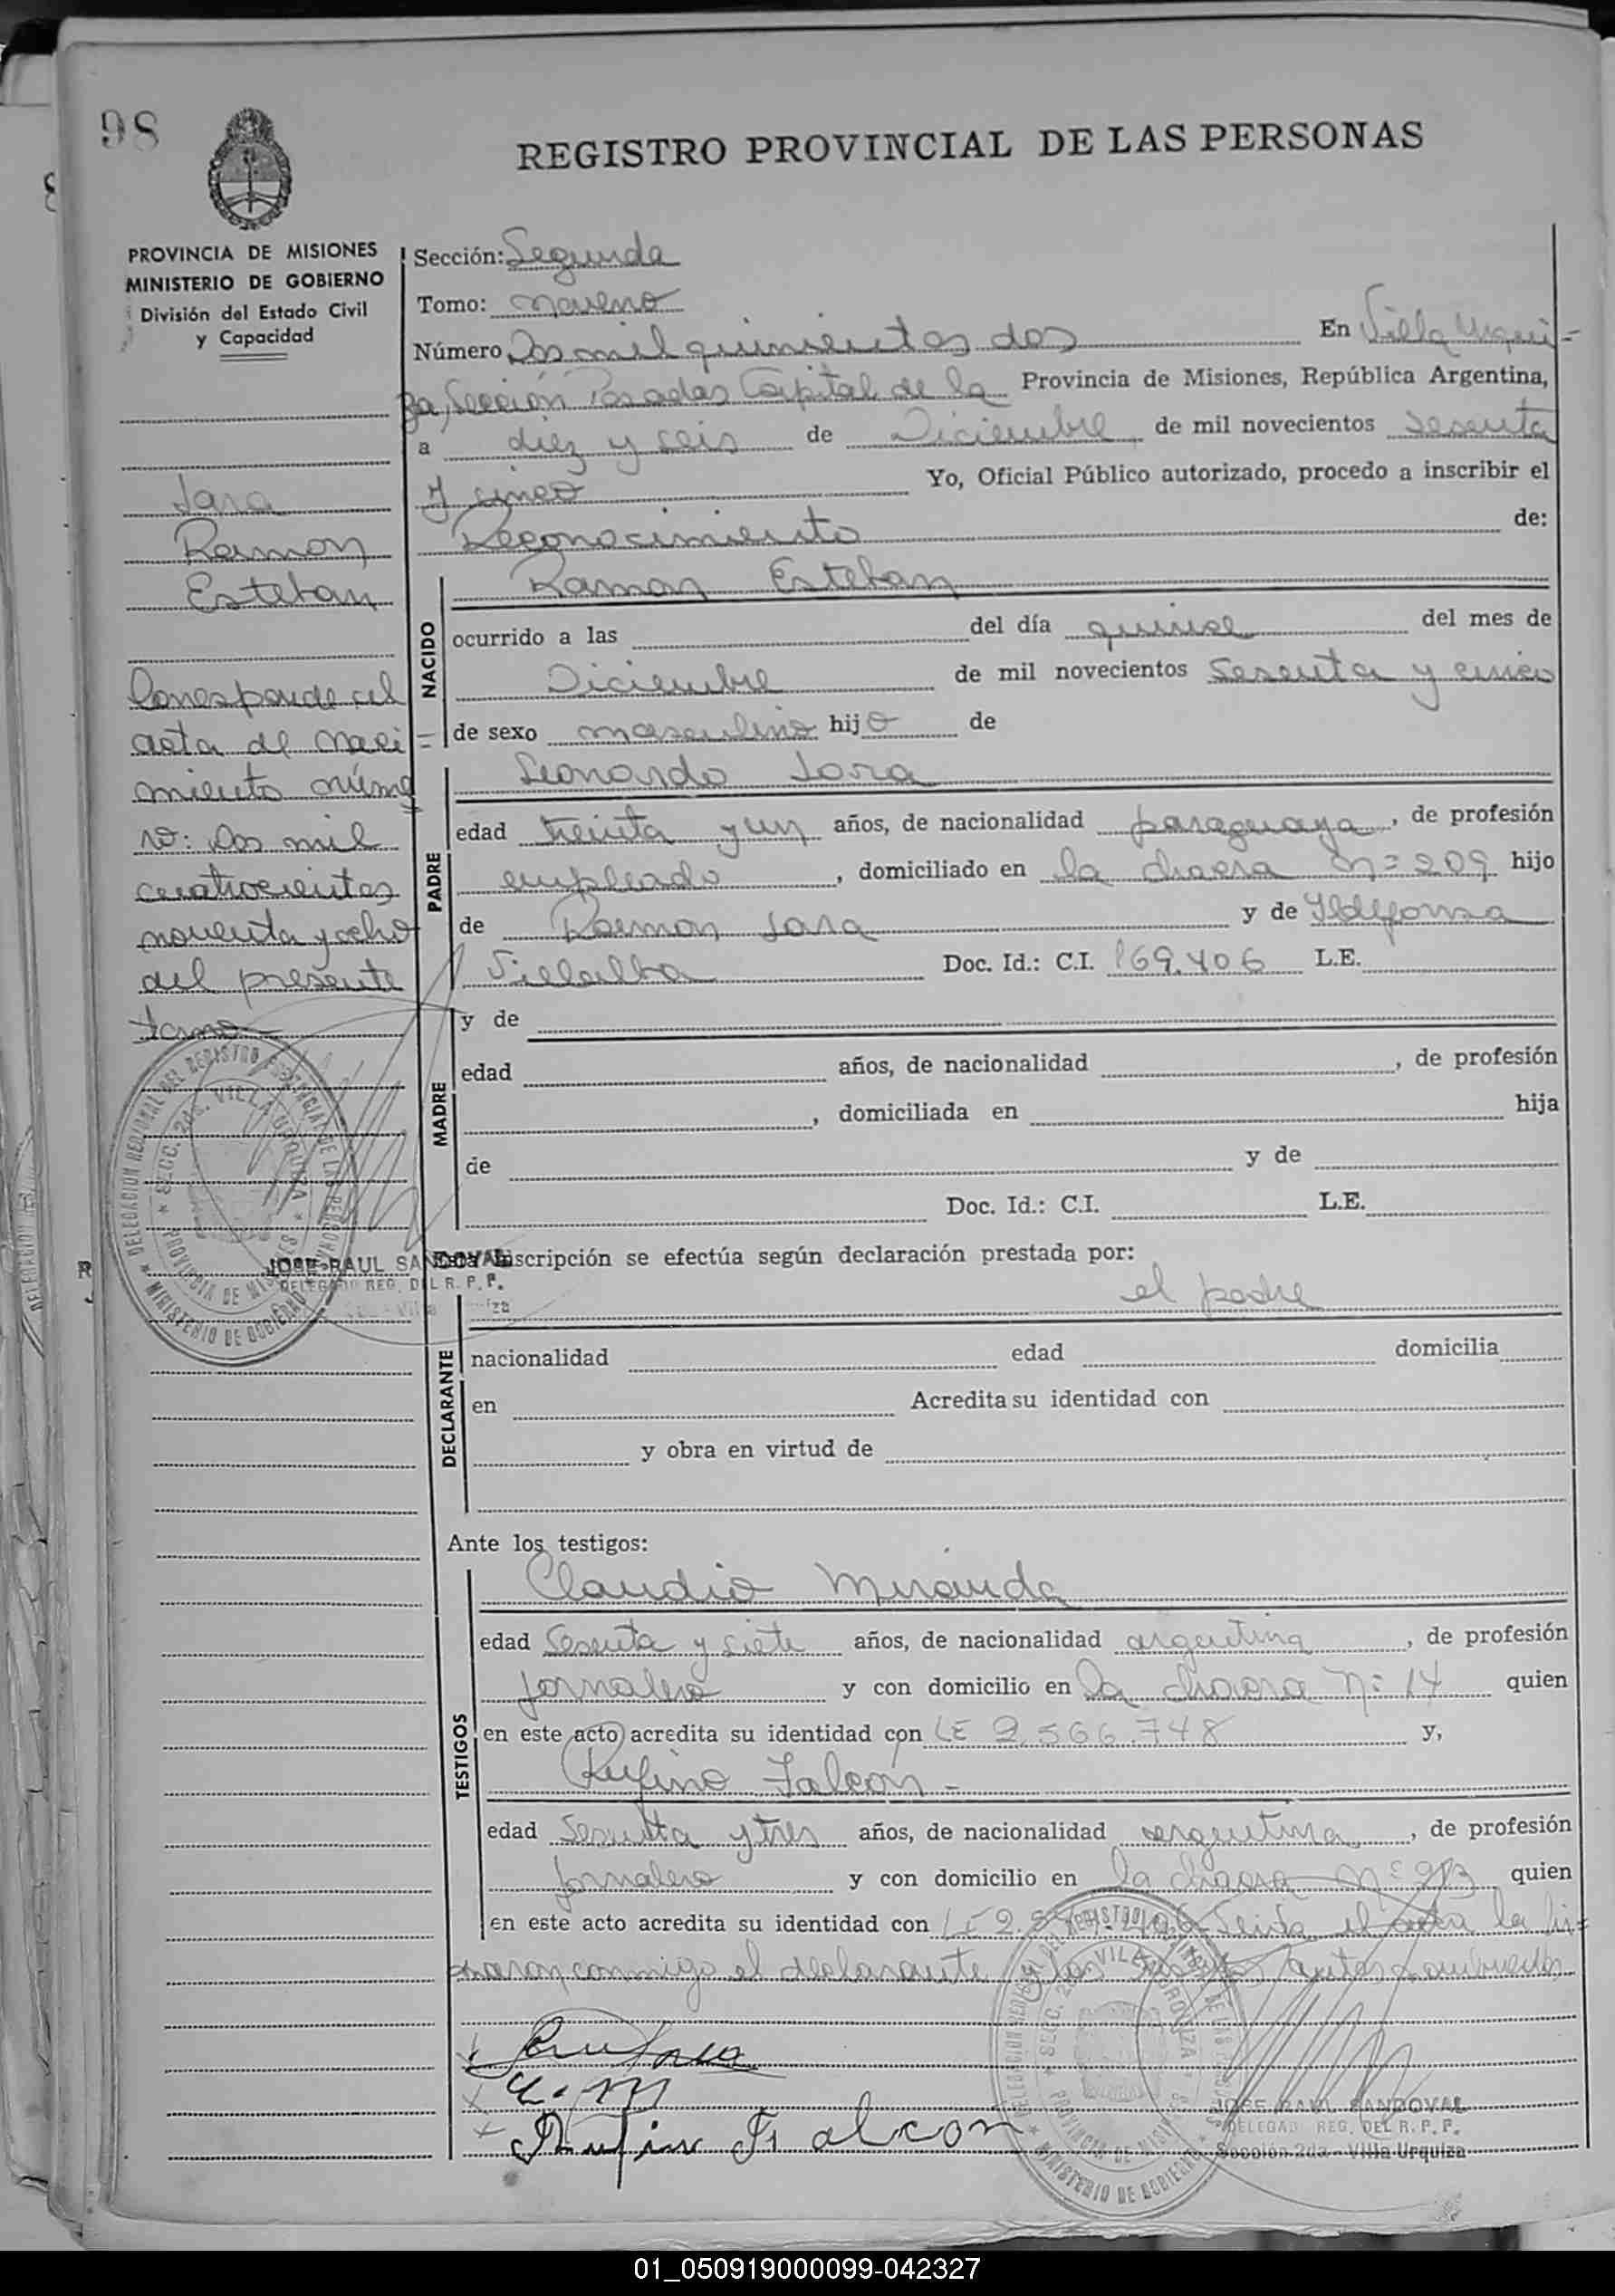 98
REGISTRO PROVINCIAL DE LAS PERSONAS
PROVINCIA DE MISIONES
MINISTERIO DE GOBIERNO
División del Estado Civil
y Capacidad
Sara
Ramon
Esteban
Corresponde al
acta de naci
miento núme
ro: Dos mil
cuatrocientos
noventa y ocho
del presente
tomo
Sección: Segunda
Tomo: noveno
Número Dos mil quinientos dos En Villa Urqui-
za, Sección Posadas Capital de la Provincia de Misiones, República Argentina,
a diez y seis de Diciembre de mil novecientos sesenta
y cinco Yo, Oficial Público autorizado, procedo a inscribir el
Reconocimiento de:
NACIDO
Ramon Esteban
ocurrido a las del día quince del mes de
Diciembre de mil novecientos sesenta y cinco
de sexo masculino hijo de
PADRE
Leonardo Sara
edad treinta y un años, de nacionalidad paraguaya, de profesión
empleado, domiciliado en la chacra nº 209 hijo
de Ramon Sara y de Ildefonsa
Villalba Doc. Id.: C.I. 169.406 L.E.
MADRE
y de
edad años, de nacionalidad , de profesión
, domiciliada en hija
de y de
Doc. Id.: C.I. L.E.
JOSE RAUL SANDOVAL
DELEGADO REG. DEL R. P. P.
Esta inscripción se efectúa según declaración prestada por:
el padre
DECLARANTE
nacionalidad edad domicilia
en Acredita su identidad con
y obra en virtud de
Ante los testigos:
TESTIGOS
Claudio Miranda
edad Sesenta y siete años, de nacionalidad argentina, de profesión
jornalero y con domicilio en la chacra nº 14 quien
en este acto acredita su identidad con LE 2.566.748 y,
Rufino Falcon -
edad Sesenta y tres años, de nacionalidad argentina, de profesión
jornalero y con domicilio en la chacra nº quien
en este acto acredita su identidad con LE 2. Leida el acta la fir=
maron conmigo el declarante y los
C. M
Rufino Falcon
DELEGACION REGIONAL DEL REGISTRO PROVINCIAL DE LAS PERSONAS
SECC. 2da. VILLA URQUIZA
PROVINCIA DE MISIONES
MINISTERIO DE GOBIERNO
JOSE RAUL SANDOVAL
DELEGADO REG. DEL R. P. P.
Sección 2da - Villa Urquiza
01_050919000099-042327